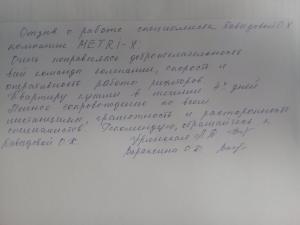 Отзыв о работе специалиста Давыдовой О.Х
компании METRI-X.
Очень понравилась доброжелательность
вкл команды компании, скорость и
оперативность работы риэлторов.
Квартиру купили в течении 4х дней
Полное сопровождение по всем
инстанциям, грамотность и расторопность
специалистов. Рекомендую, обращайтесь к
Давыдовой О.Х.